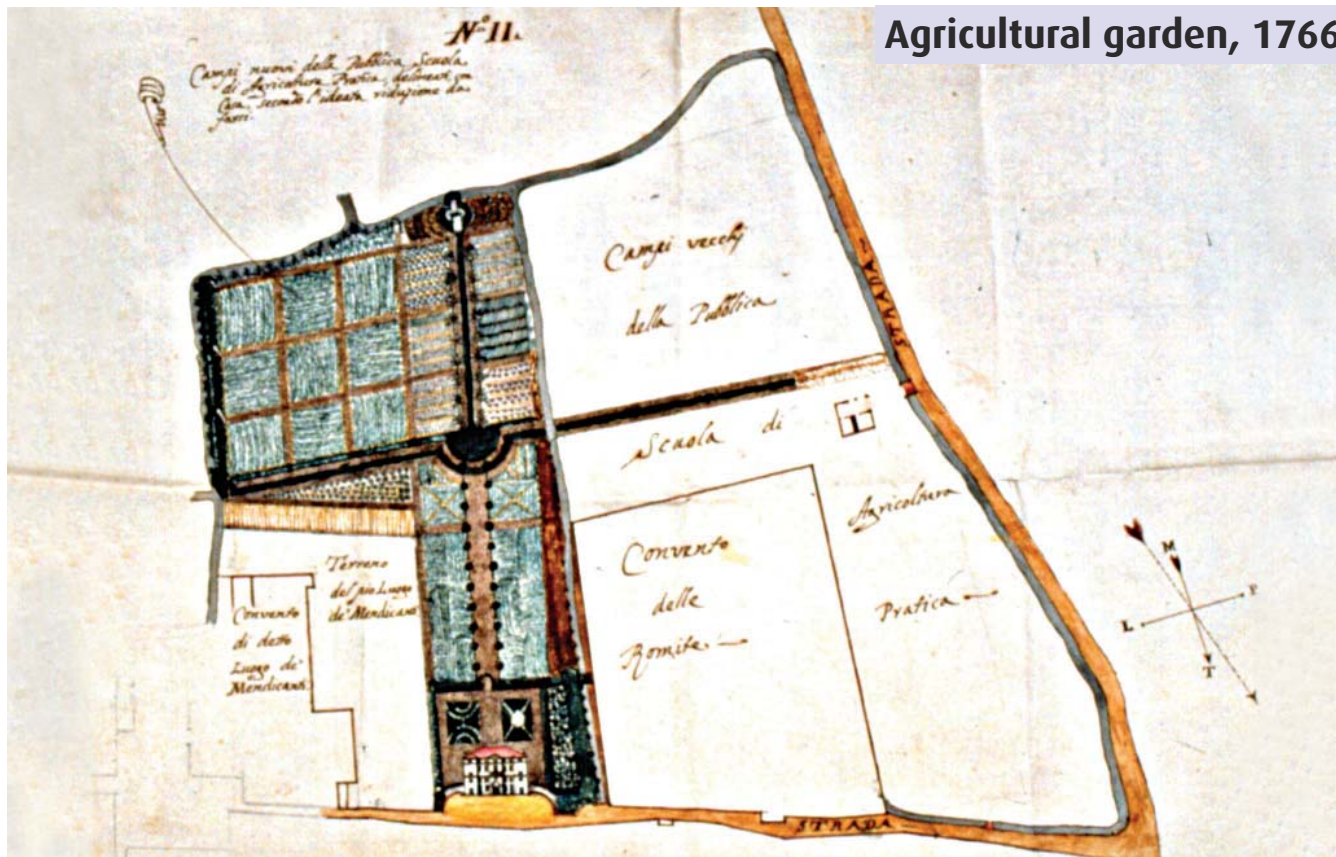 Agricultural garden, 1766
N.º II.
Campi nuovi della Pubblica Scuola
di Agricoltura Pratica, delineati con
secondo l'ideata riduzione da
farsi.
Campi vecchj
della Pubblica
STRADA
Scuola di
Agricoltura
Pratica
Convento
delle
Romite
Terreno
del pio Luogo
de' Mendicanti
Convento
di detto
Luogo de'
Mendicanti
M
P
L
T
STRADA